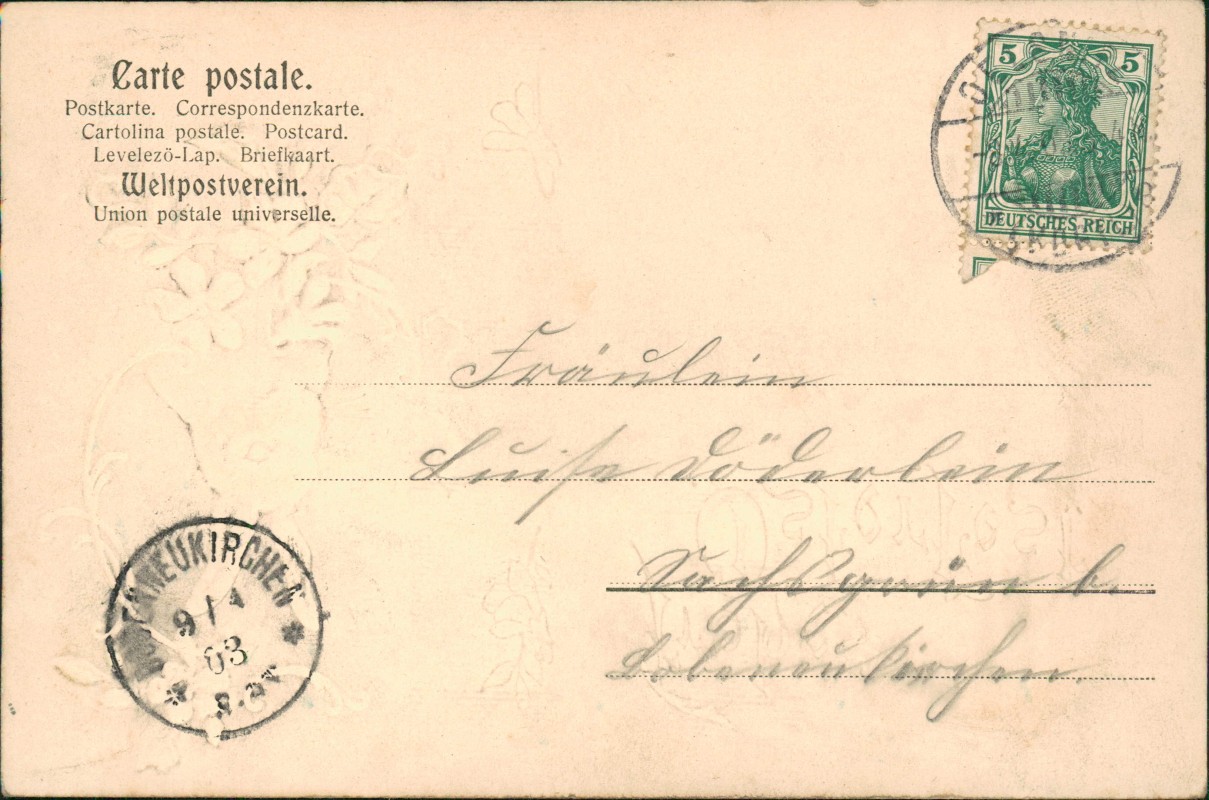 Carte postale.
Postkarte. Correspondenzkarte.
Cartolina postale. Postcard.
Levelezö-Lap. Briefkaart.
Weltpostverein.
Union postale universelle.
5 5
DEUTSCHES REICH
Fräulein
Luise Döderlein
Sachsgrün b.
Lobeneukirchen.
NEUKIRCHEN
9/4
03